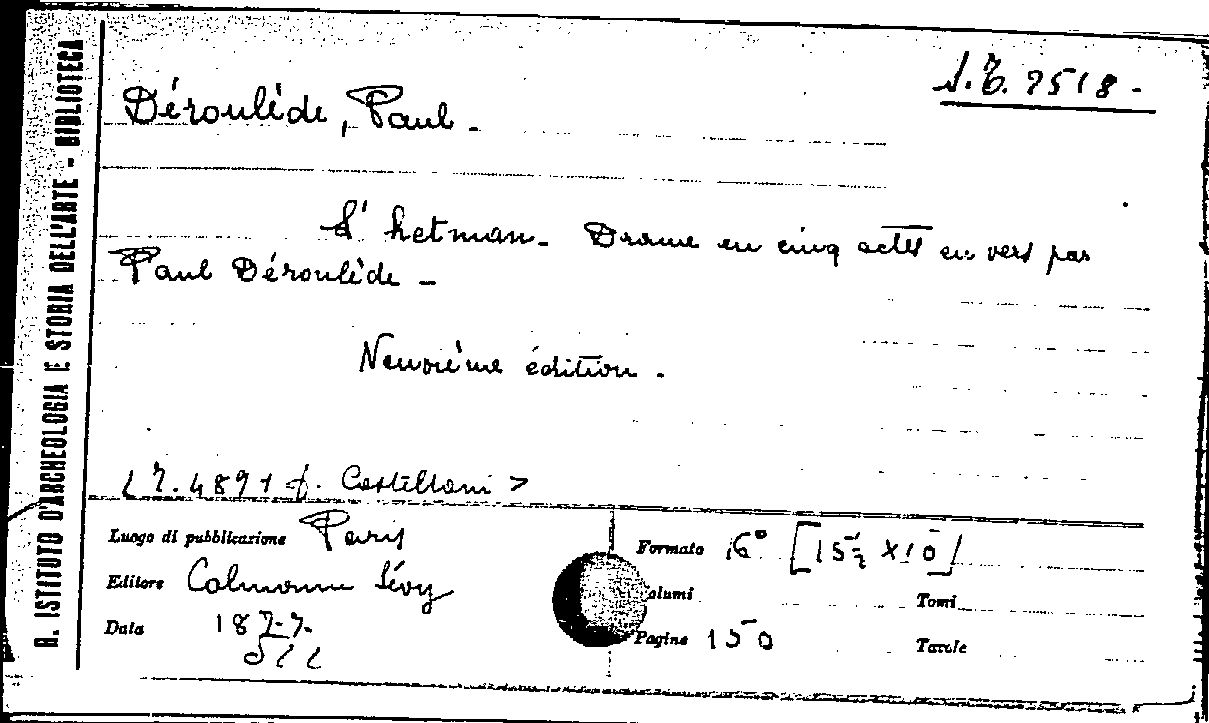 R. ISTITUTO D'ARCHEOLOGIA E STORIA DELL'ARTE - BIBLIOTECA
Déroulède, Paul -
L'hetman - Drame en cinq actes en vers par
Paul Déroulède -
Neuvième édition -
Castellani >
Luogo di pubblicazione Paris
Editore Calmann Lévy
Data 1877
Formato 16° [15½ x 10]
Volumi Tomi
Pagine 150 Tavole